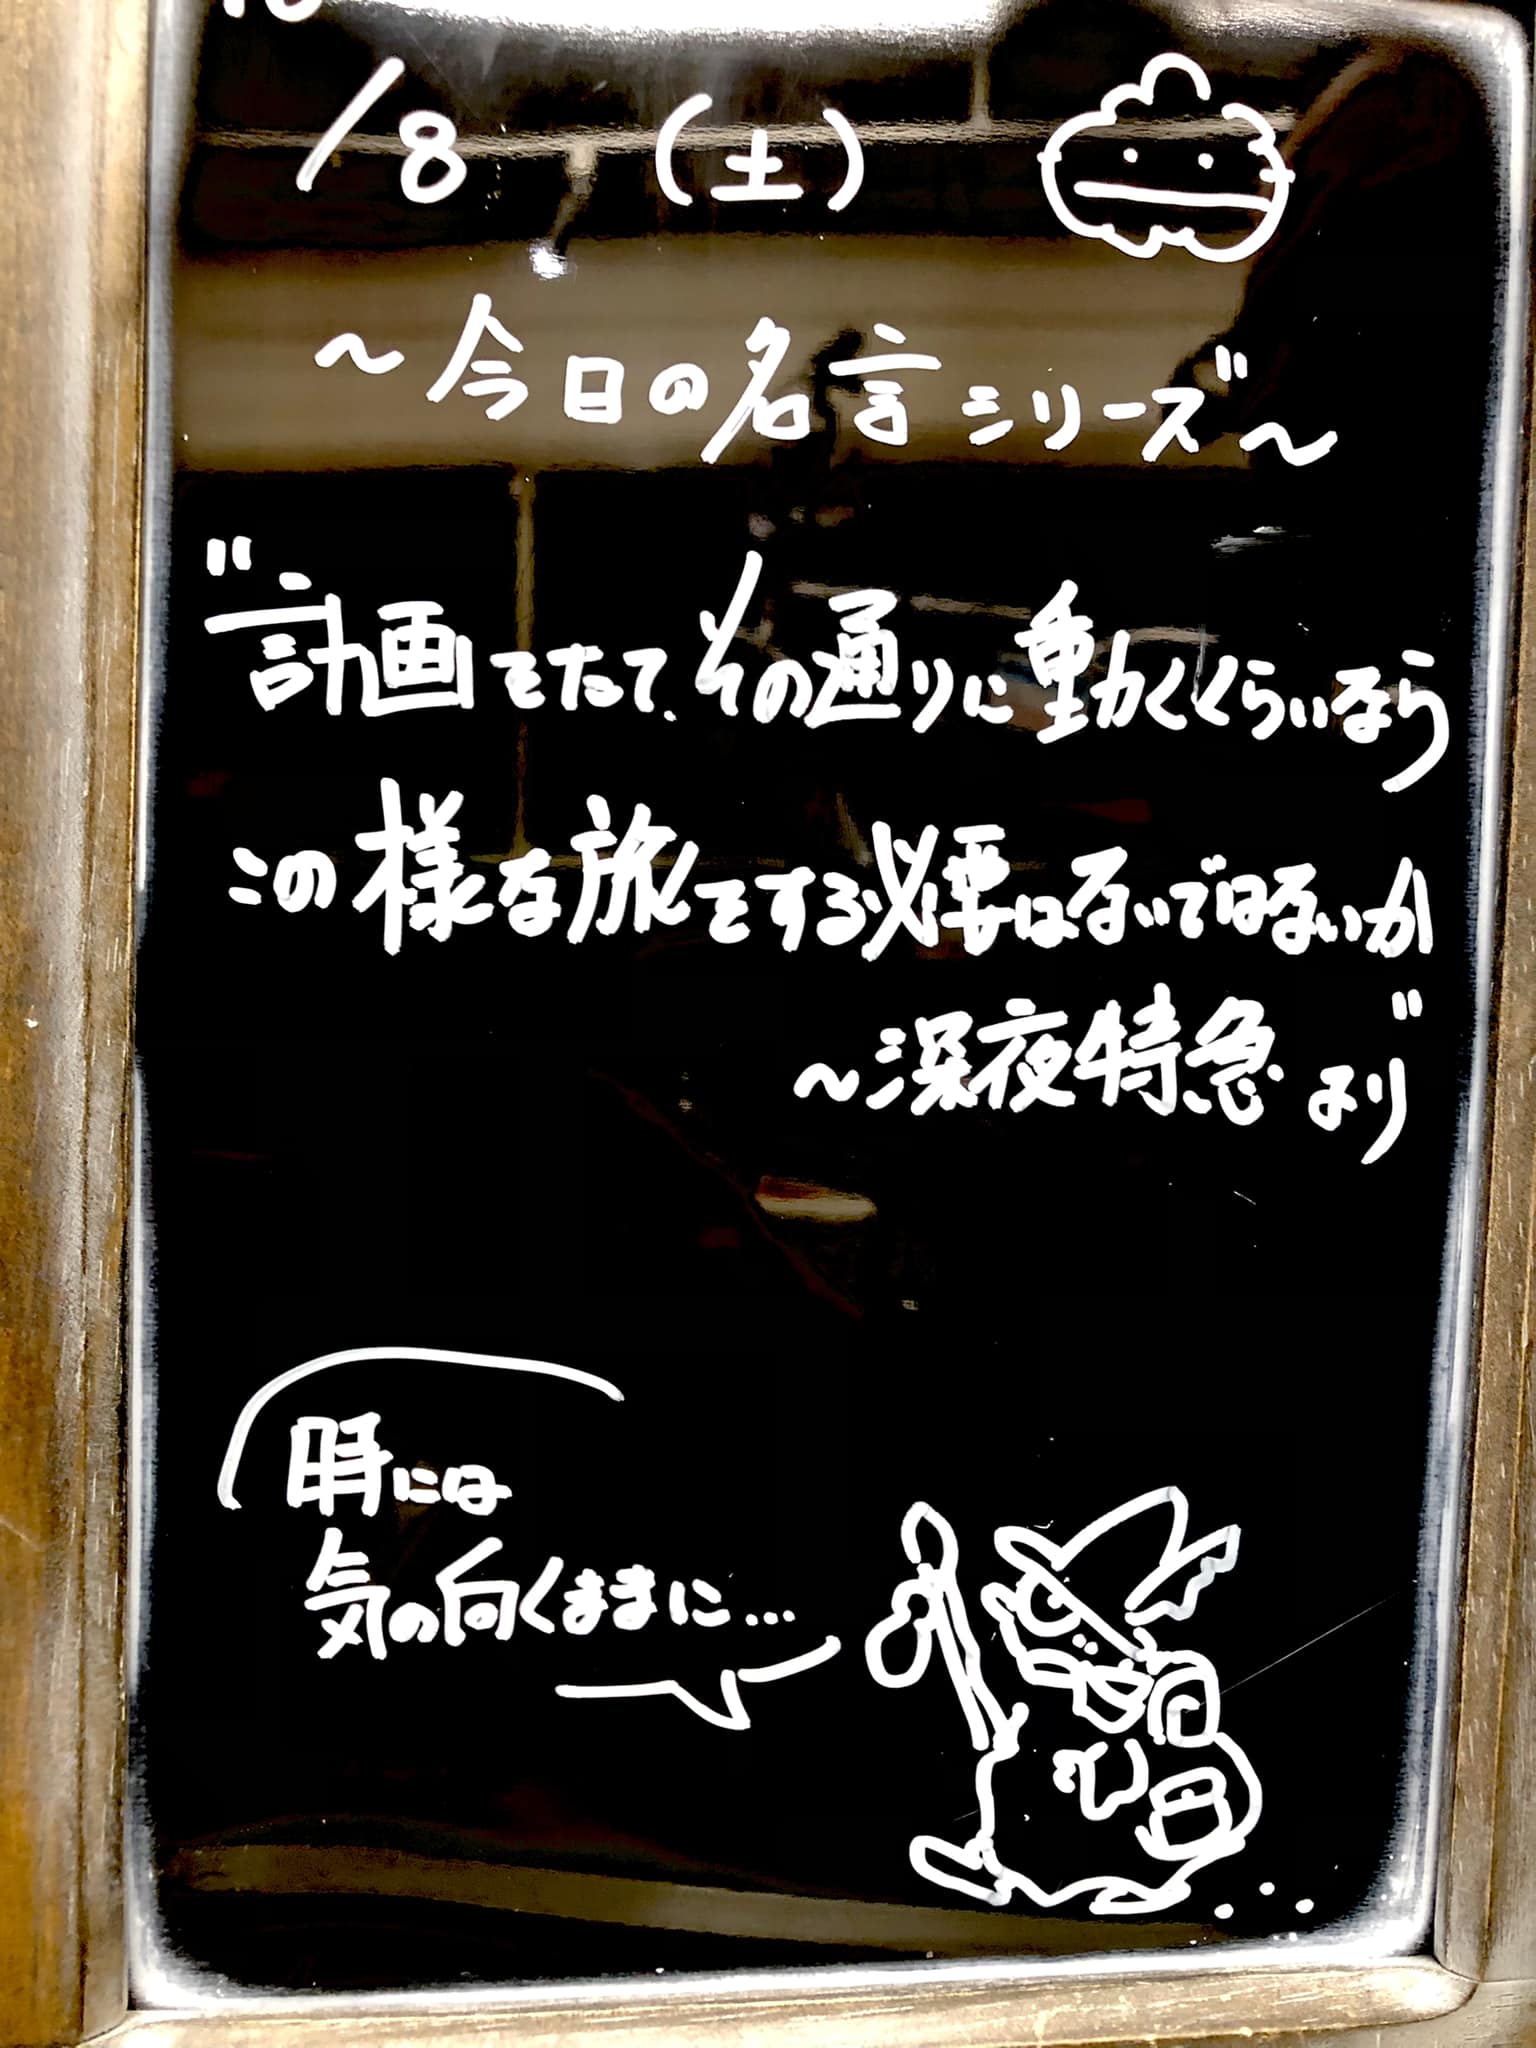 /8 (土)
~今日の名言シリーズ~
"計画をたて、その通りに動くくらいなら
この様な旅をする必要はないではないか"
~深夜特急より
時には
気の向くままに…